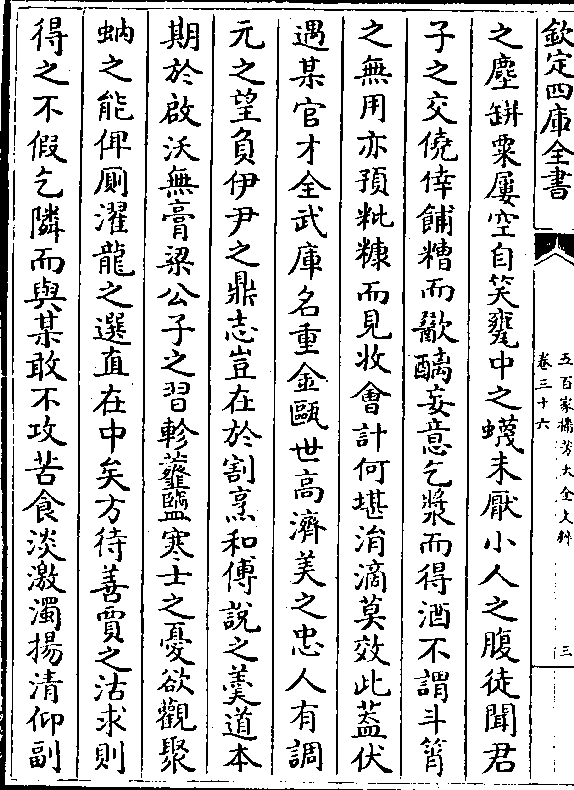 欽定四庫全書
五百家播芳大全文粹
卷三十六
三
之塵缾粟屢空自笑甕中之蠛未厭小人之腹徒聞君
子之交僥倖餔糟而歠醨妄意乞漿而得酒不謂斗筲
之無用亦預粃糠而見收會計何堪涓滴莫效此蓋伏
遇某官才全武庫名重金甌世高濟美之忠人有調
元之望負伊尹之鼎志豈在於割烹和傅說之羮道本
期於啟沃無膏粱公子之習軫虀鹽寒士之憂欲觀聚
蚋之能俾厠濯龍之選直在中矣方待善賈之沽求則
得之不假乞隣而與某敢不攻苦食淡激濁揚清仰副